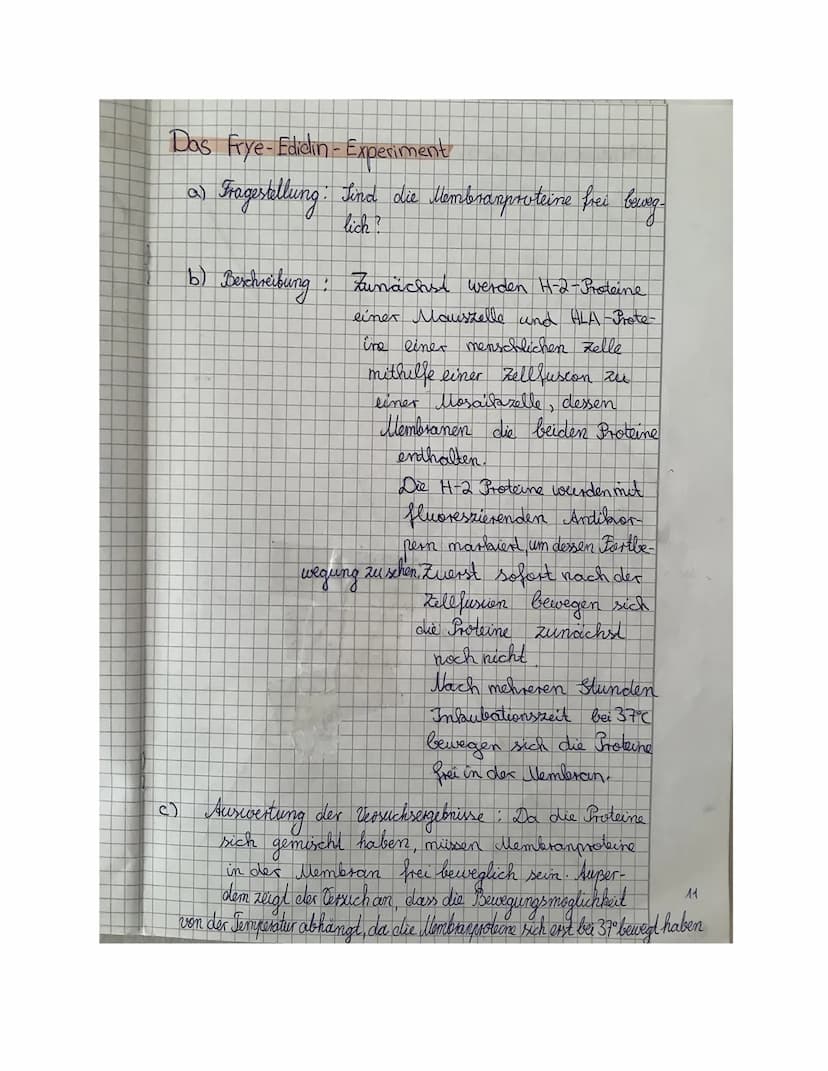 Das Frye-Edidin-Experiment
a) Fragestellung: Sind die Membranproteine frei beweg-
lich?
b) Beschreibung: Zunächst werden H-2-Proteine
einer Mauszelle und HLA-Prote-
ine einer menschlichen Zelle
mithilfe einer Zellfuscon zu
einer Mosaikzelle, dessen
Membranen die beiden Proteine
endhalten.
Die H-2 Proteine wurden mit
fluoreszierenden Antikör-
pern markiert, um dessen Fortbe-
wegung zu sehen. Zuerst sofort nach der
Zellfusion bewegen sich
die Proteine zunächst
noch nicht.
Nach mehreren Stunden
Inkubationszeit bei 37°C
bewegen sich die Proteine
frei in der Membran.
c) Auswertung der Versuchsergebnisse: Da die Proteine
sich gemischt haben, müssen Membranproteine
in der Membran frei beweglich sein. Außer-
dem zeigt der Versuch an, dass die Bewegungsmöglichkeit
11
von der Temperatur abhängt, da die Membranproteine sich erst bei 37° bewegt haben